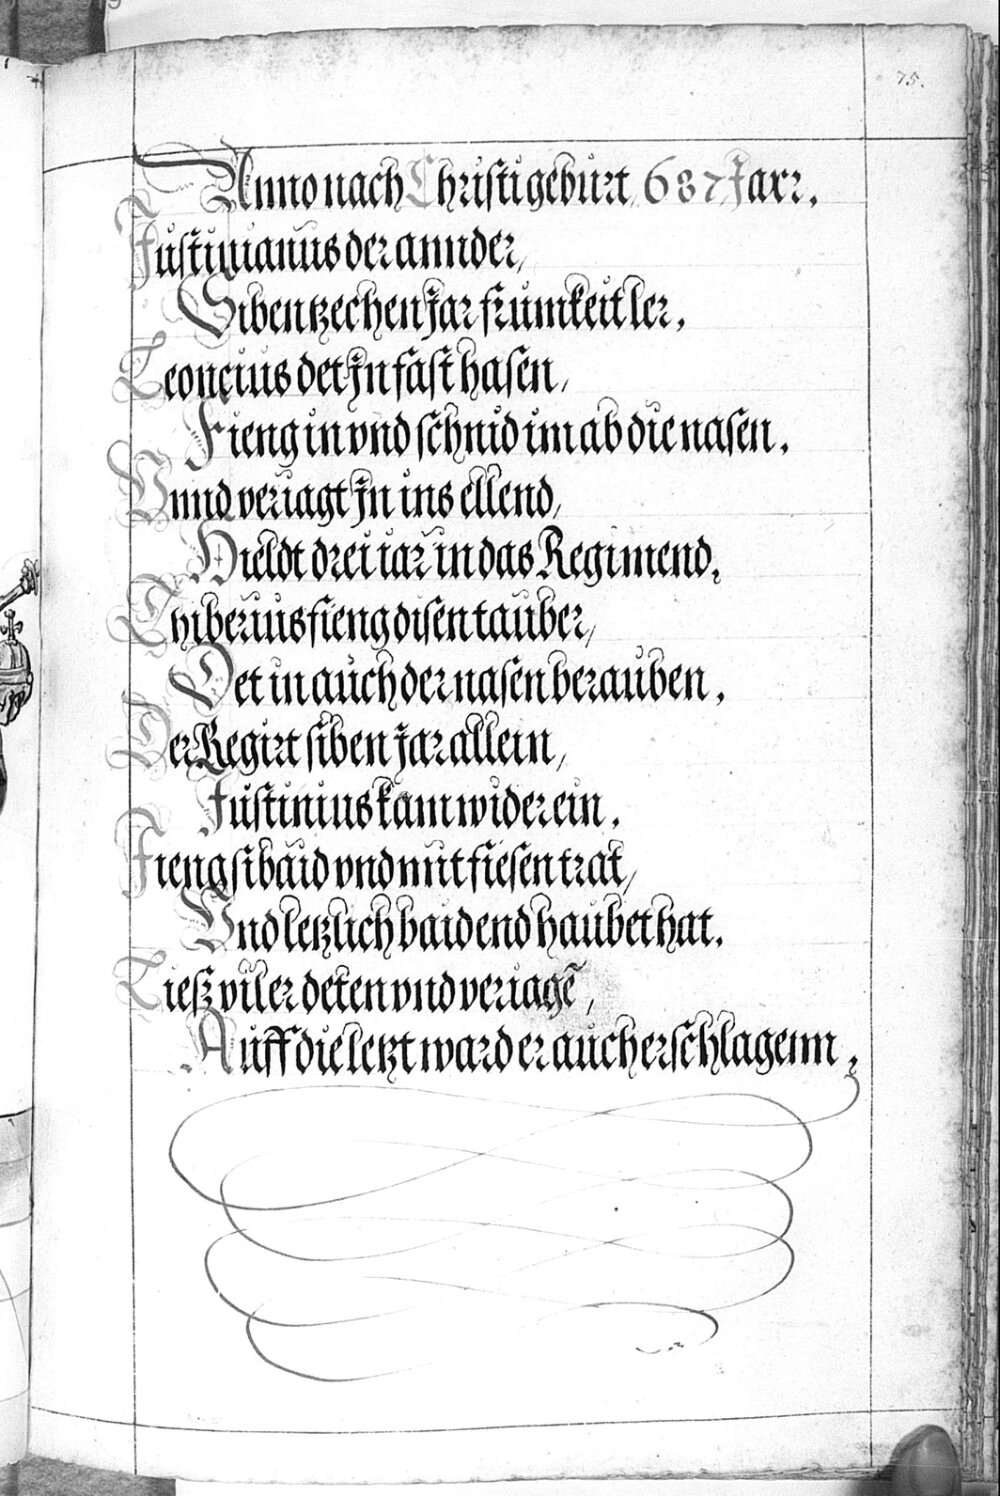 75.
Anno nach Christi gebürt 687 Jarr.
Jüstinianüs der annder,
Sibentzechen Jar frümkeit ler.
Leoncius det Jn fast hasen,
Fieng in vnd schnid im ab die nasen.
Vnnd veriagt Jn ins ellend,
Hieldt drei iar in das Regimend.
Thiberiüs fieng disen taüber,
Det in aüch der nasen beraüben.
Der Regirt siben Jar allein,
Jüstinius kam wider ein.
Fieng si baid vnd mit fiesen trat,
Vnd letzlich baid endhaübet hat.
Liesz viler deten vnd veriagē,
Aüff die letzt ward er aüch erschlagenn.